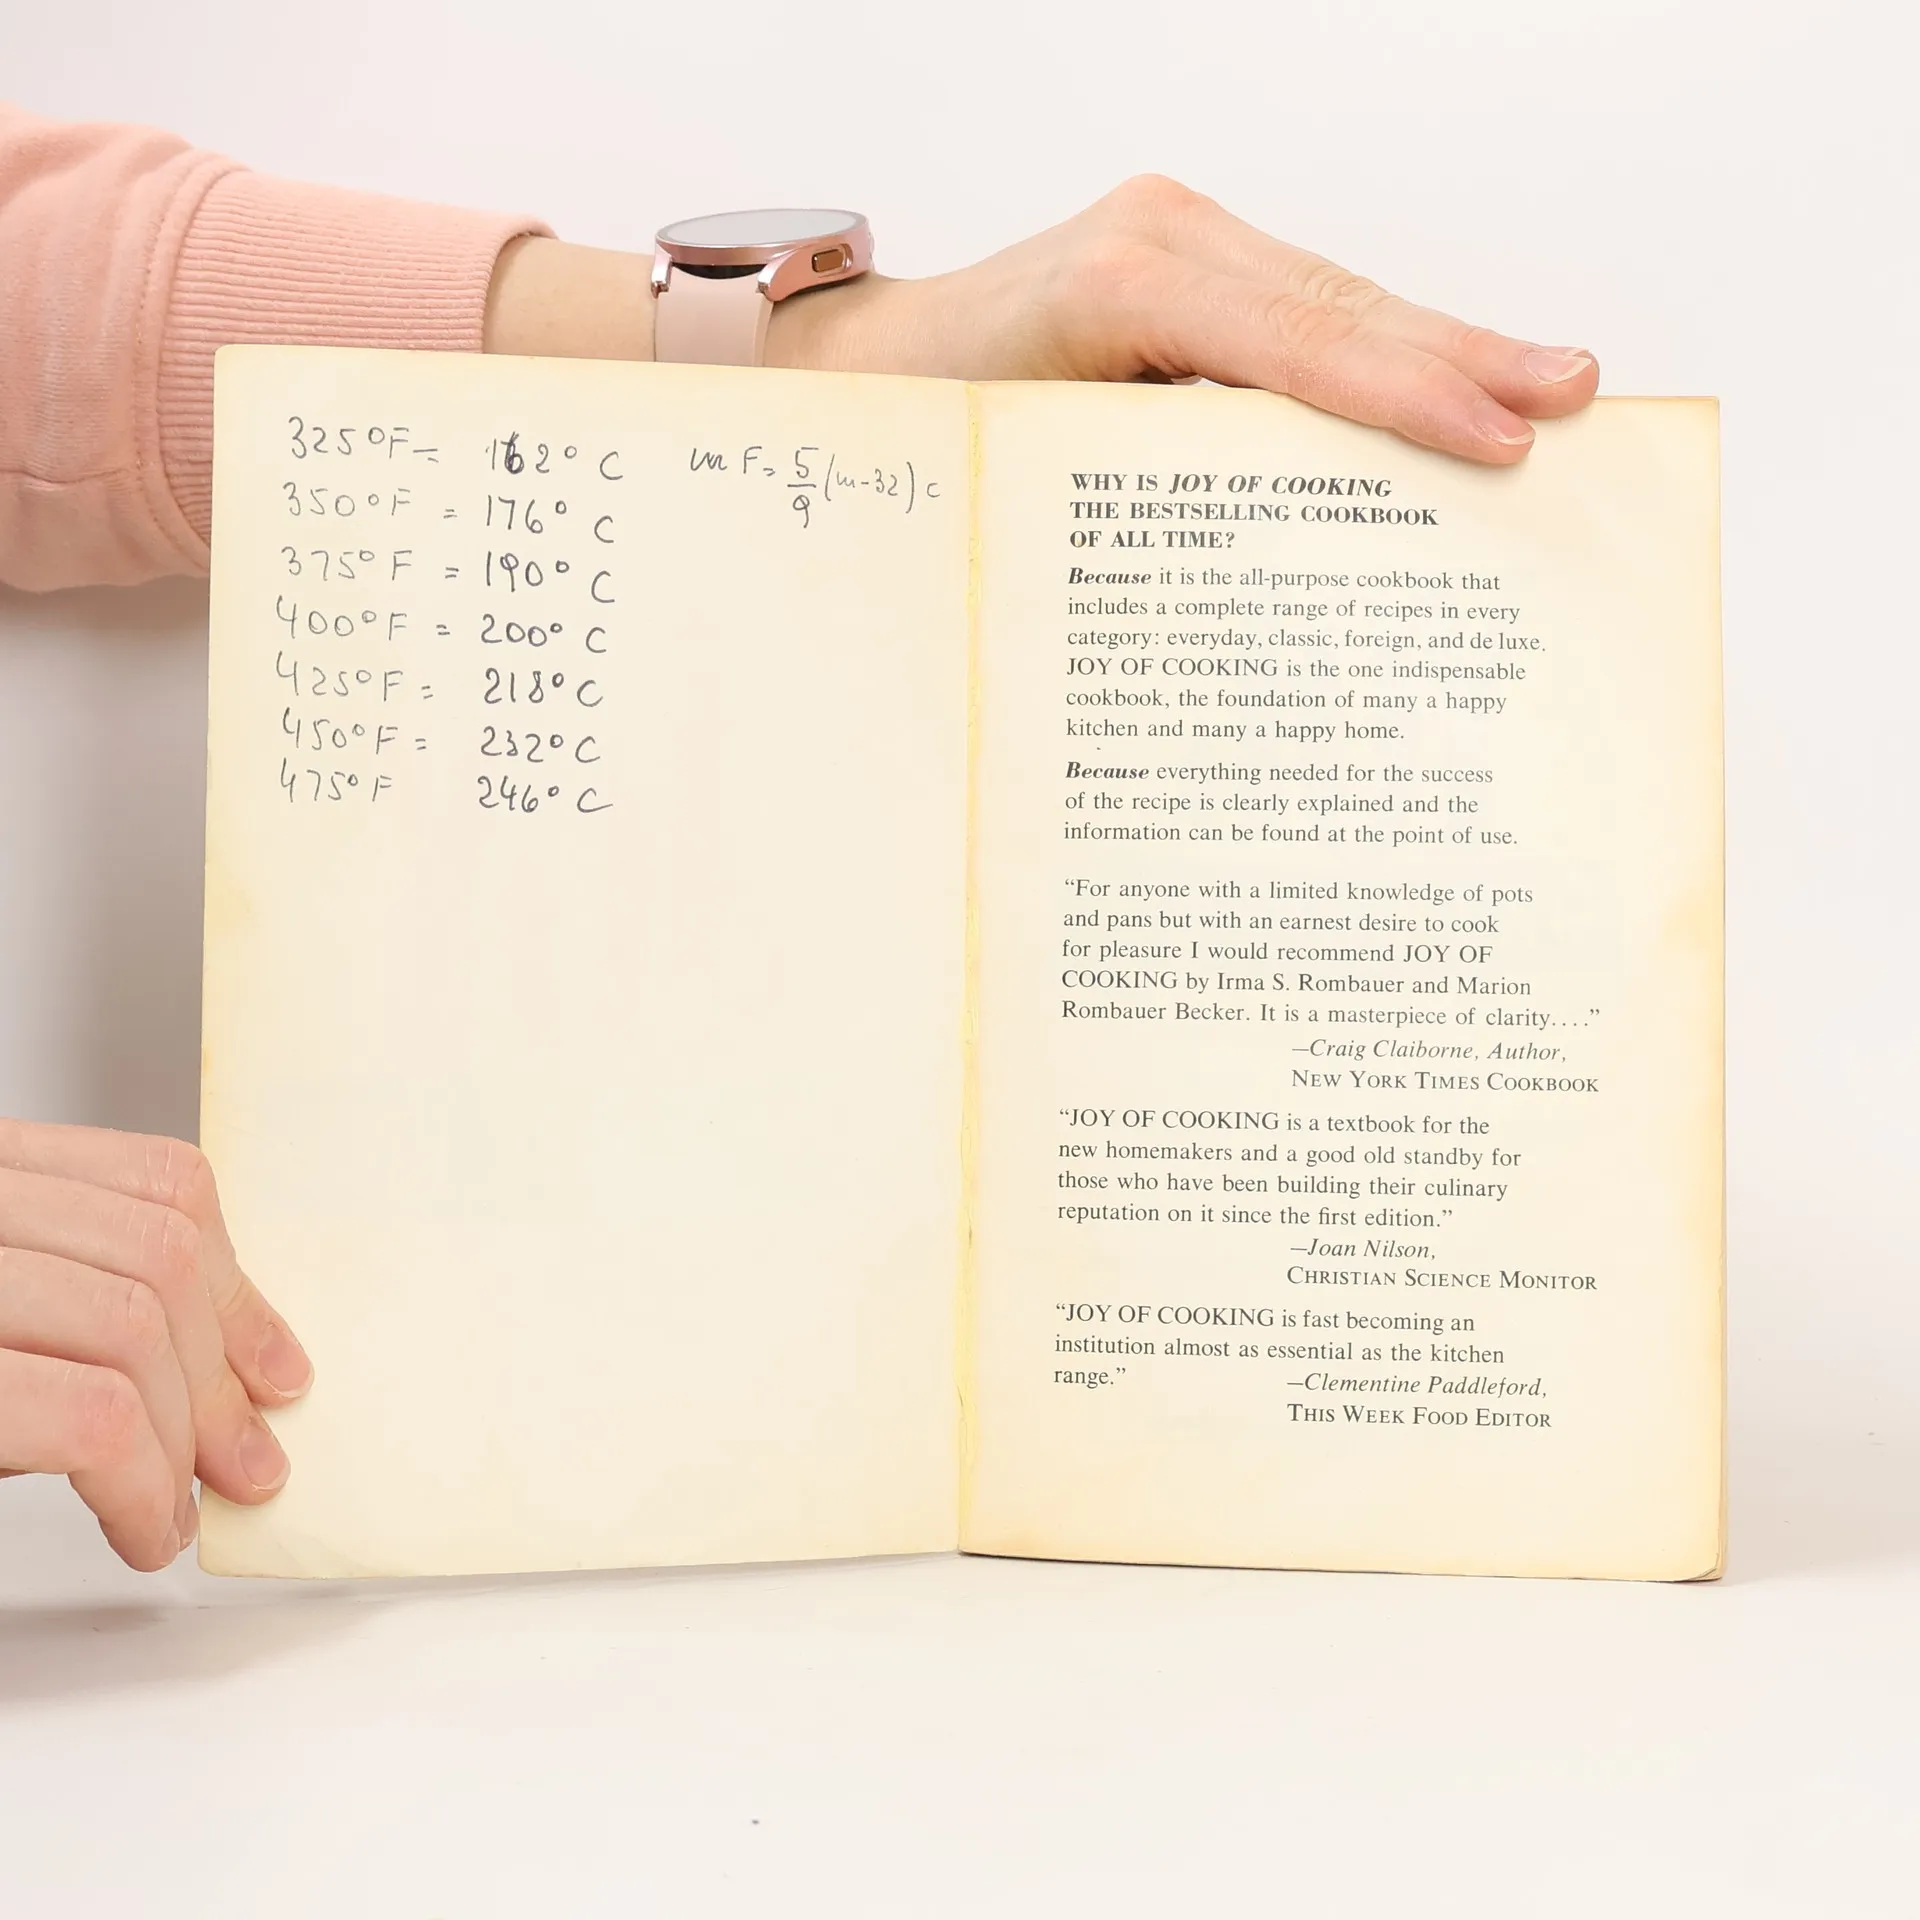 325°F = 162° C
350°F = 176° C
375°F = 190° C
400°F = 200° C
425°F = 218° C
450°F = 232° C
475°F 246° C
m F = 5/9 (m-32) C
WHY IS JOY OF COOKING
THE BESTSELLING COOKBOOK
OF ALL TIME?
Because it is the all-purpose cookbook that
includes a complete range of recipes in every
category: everyday, classic, foreign, and de luxe.
JOY OF COOKING is the one indispensable
cookbook, the foundation of many a happy
kitchen and many a happy home.
Because everything needed for the success
of the recipe is clearly explained and the
information can be found at the point of use.
“For anyone with a limited knowledge of pots
and pans but with an earnest desire to cook
for pleasure I would recommend JOY OF
COOKING by Irma S. Rombauer and Marion
Rombauer Becker. It is a masterpiece of clarity....”
—Craig Claiborne, Author,
NEW YORK TIMES COOKBOOK
“JOY OF COOKING is a textbook for the
new homemakers and a good old standby for
those who have been building their culinary
reputation on it since the first edition.”
—Joan Nilson,
CHRISTIAN SCIENCE MONITOR
“JOY OF COOKING is fast becoming an
institution almost as essential as the kitchen
range.”
—Clementine Paddleford,
THIS WEEK FOOD EDITOR